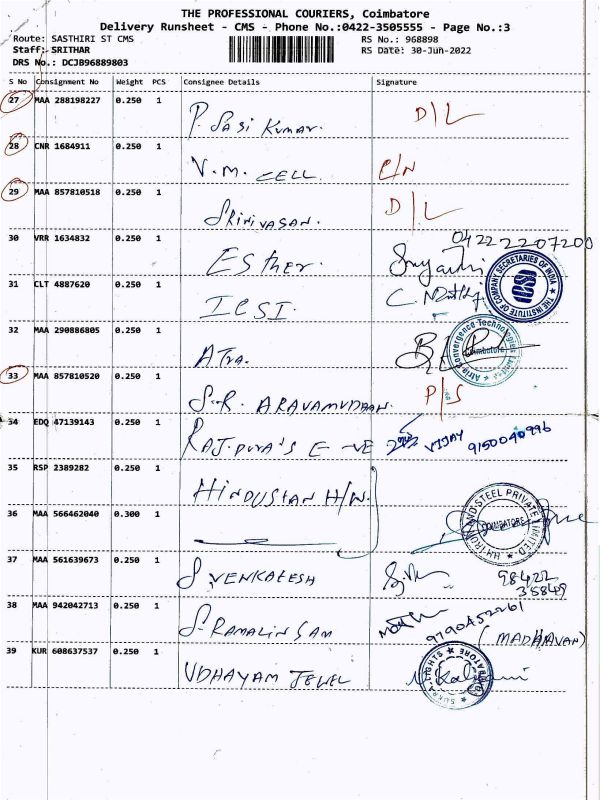 THE PROFESSIONAL COURIERS, Coimbatore
Delivery Runsheet - CMS - Phone No.:0422-3505555 - Page No.:3
Route: SASTHIRI ST CMS RS No.: 968898
Staff: SRITHAR RS Date: 30-Jun-2022
DRS No.: DCJB96889803
S No Consignment No Weight PCS Consignee Details Signature
27 MAA 288198227 0.250 1 P. Sasi Kumar. D/L
28 CNR 1684911 0.250 1 V.M. CELL
29 MAA 857810518 0.250 1 SRINIVASAN. D/L
04222207200
30 VRR 1634832 0.250 1 Esther.
31 CLT 4887620 0.250 1 ICSI. THE INSTITUTE OF COMPANY SECRETARIES OF INDIA
32 MAA 290886805 0.250 1 Atria Convergence Technologies Limited Coimbatore
33 MAA 857810520 0.250 1 S.R. ARAVAMUDAAN. P/S
34 EDQ 47139143 0.250 1 VIJAY 9150040996
35 RSP 2389282 0.250 1 HINDUSTAN H/W.
36 MAA 566462040 0.300 1 STEEL PRIVATE LIMITED COIMBATORE
37 MAA 561639673 0.250 1 S VENKATESH 98422 35849
38 MAA 942042713 0.250 1 S. RAMALINGAM 9790452261 (MADHAVAN)
39 KUR 608637537 0.250 1 UDHAYAM JEWEL